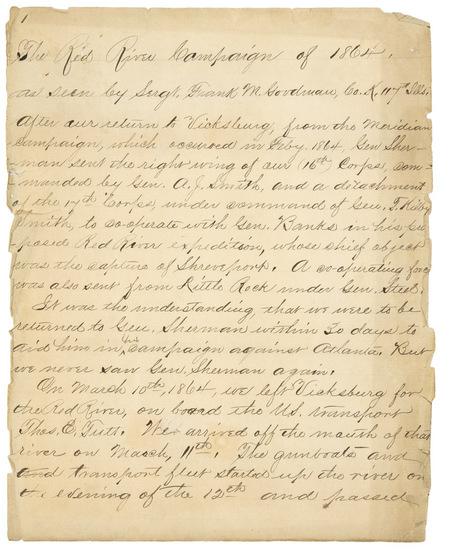 1
The Red River Campaign of 1864.
as seen by Sergt. Frank M. Goodman, Co. K, 117th Ills.
After our return to Vicksburg, from the Meridian
Campaign, which occurred in Feby. 1864, Gen. Sher-
man sent the right wing of our (16th) Corps, com-
manded by Gen. A. J. Smith, and a detachment
of the 17th Corps, under command of Gen. T. Kilby
Smith, to co-operate with Gen. Banks in his pro-
posed Red River expedition, whose chief object
was the capture of Shreveport. A co-operating force
was also sent from Little Rock under Gen. Steel.
It was the understanding that we were to be
returned to Gen. Sherman within 30 days to
aid him in his campaign against Atlanta. But
we never saw Gen. Sherman again.
On March 10th, 1864, we left Vicksburg for
the Red River, on board the U.S. transport
Thos. E. Tutt. We arrived off the mouth of that
river on March, 11th. The gunboats and
and transport fleet started up the river on
the evening of the 12th and passed